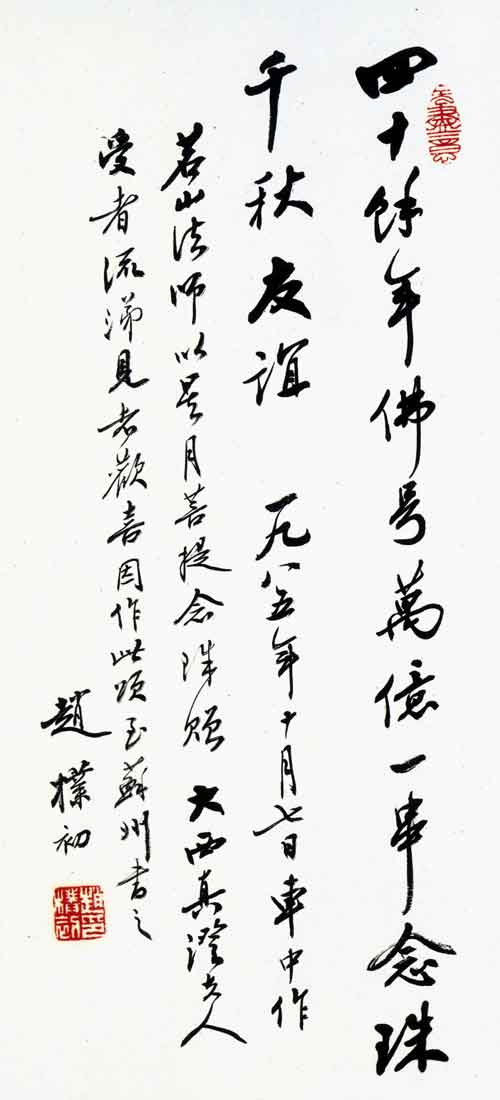 四十余年佛号萬億一串念珠
千秋友誼 一九八五年十月七日車中作
茗山法师以星月菩提念珠贈 大西真澄夫人
受者流涕見者歡喜因作此頌至蘇州書之
趙樸初
趙樸初印